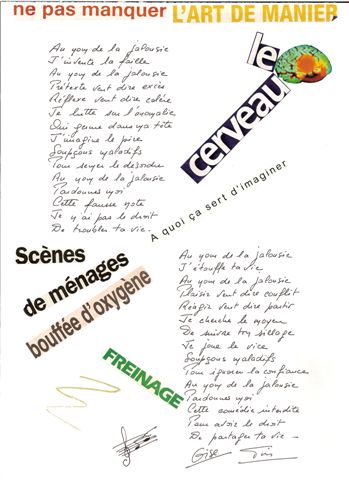 ne pas manquer L'ART DE MANIER
le
cerveau
Au nom de la jalousie
J'invente la faille
Au nom de la jalousie
Prétexte veut dire excès
Réflexe veut dire colère
Je lutte sur l'anomalie
Qui germe dans ma tête
J'imagine le pire
Soupçons maladifs
Pour semer le désordre
Au nom de la jalousie
Pardonnes moi
Cette fausse note
Je n'ai pas le droit
De troubler ta vie.
A quoi ça sert d'imaginer
Scènes
de ménages
bouffée d'oxygène
FREINAGE
Au nom de la jalousie
J'étouffe ta vie
Au nom de la jalousie
Plaisir veut dire conflit
Réagir veut dire partir
Je cherche le moyen
De suivre ton sillage
Je joue le vice
Soupçons maladifs
Pour ignorer la confiance
Au nom de la jalousie
Pardonnes moi
Cette comédie interdite
Pour avoir le droit
De partager ta vie -